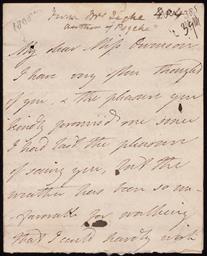 From Mrs Tighe
author of Psyche
My dear Miss Owenson
I have very often thought
of you, & the pleasure you
kindly promised me since
I had last the pleasure
of seeing you, but the
weather has been so un-
favorable for walking
that I could hardly wish